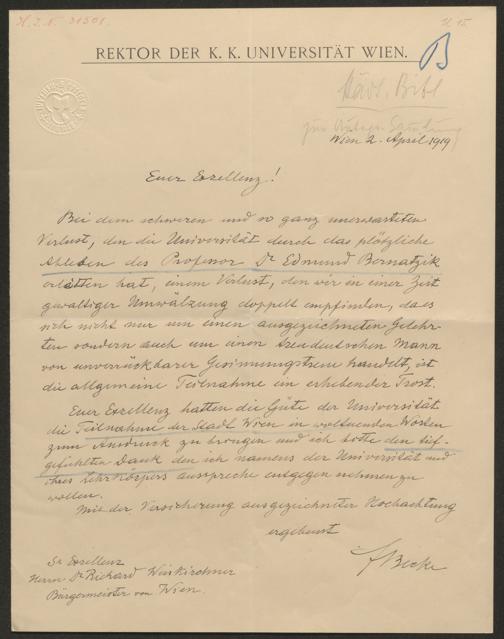 H. I. N. 31501.
REKTOR DER K. K. UNIVERSITÄT WIEN.
B
Städt. Bibl
Wien 2. April 1919
Euer Exzellenz!
Bei dem schweren und so ganz unerwarteten
Verlust, den die Universität durch das plötzliche
Ableben des Professor Dr Edmund Bernatzik
erlitten hat, einem Verlust, den wir in einer Zeit
gewaltiger Umwälzung doppelt empfinden, da es
sich nicht nur um einen ausgezeichneten Gelehr-
ten sondern auch um einen kerndeutschen Mann
von unverrückbarer Gesinnungstreue handelt, ist
die allgemeine Teilnahme ein erhebender Trost.
Euer Exzellenz hatten die Güte der Universität
die Teilnahme der Stadt Wien in woltuenden Worten
zum Ausdruck zu bringen und ich bitte den tief-
gefühlten Dank den ich namens der Universität und
ihres Lehrkörpers ausspreche entgegen nehmen zu
wollen.
Mit der Versicherung ausgezeichneter Hochachtung
ergebenst
FBecke
Sr Exzellenz
Herrn Dr Richard Weiskirchner
Bürgermeister von Wien.